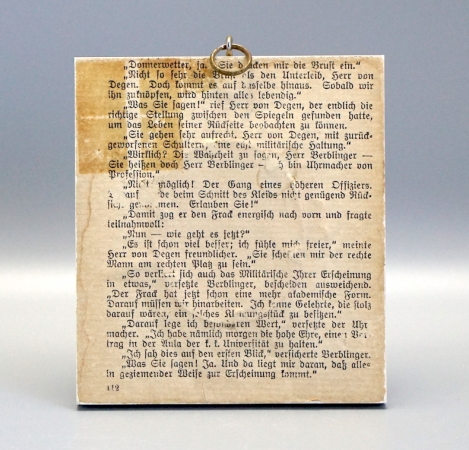 „Donnerwetter, ja. Sie drücken mir die Brust ein.“
„Nicht so sehr die Brust als den Unterleib, Herr von
Degen. Doch kommt es auf dasselbe hinaus. Sobald wir
ihn zuknöpfen, wird hinten alles lebendig.“
„Was Sie sagen!“ rief Herr von Degen, der endlich die
richtige Stellung zwischen den Spiegeln gefunden hatte,
um das Leben seiner Rückseite beobachten zu können.
„Sie gehen sehr aufrecht, Herr von Degen, mit zurück-
geworfenen Schultern, eine echt militärische Haltung.“
„Wirklich? Die Wahrheit zu sagen, Herr Berblinger —
Sie heißen doch Herr Berblinger — ich bin Uhrmacher von
Profession.“
„Nicht möglich! Der Gang eines höheren Offiziers.
Darauf wurde beim Schnitt des Kleids nicht genügend Rück-
sicht genommen. Erlauben Sie!“
„Damit zog er den Frack energisch nach vorn und fragte
teilnahmvoll:
„Nun — wie geht es jetzt?“
„Es ist schon viel besser; ich fühle mich freier,“ meinte
Herr von Degen freundlicher. „Sie scheinen mir der rechte
Mann am rechten Platz zu sein.“
„So verliert sich auch das Militärische Ihrer Erscheinung
in etwas,“ versetzte Berblinger, bescheiden ausweichend.
„Der Frack hat jetzt schon eine mehr akademische Form.
Darauf müssen wir hinarbeiten. Ich kenne Gelehrte, die stolz
darauf wären, ein solches Kleidungsstück zu besitzen.“
„Darauf lege ich besonderen Wert,“ versetzte der Uhr
macher. „Ich habe nämlich morgen die hohe Ehre, einen Vor
trag in der Aula der k. k. Universität zu halten.“
„Ich sah dies auf den ersten Blick,“ versicherte Berblinger.
„Was Sie sagen! Ja. Und da liegt mir daran, daß alles
in geziemender Weise zur Erscheinung kommt.“
112